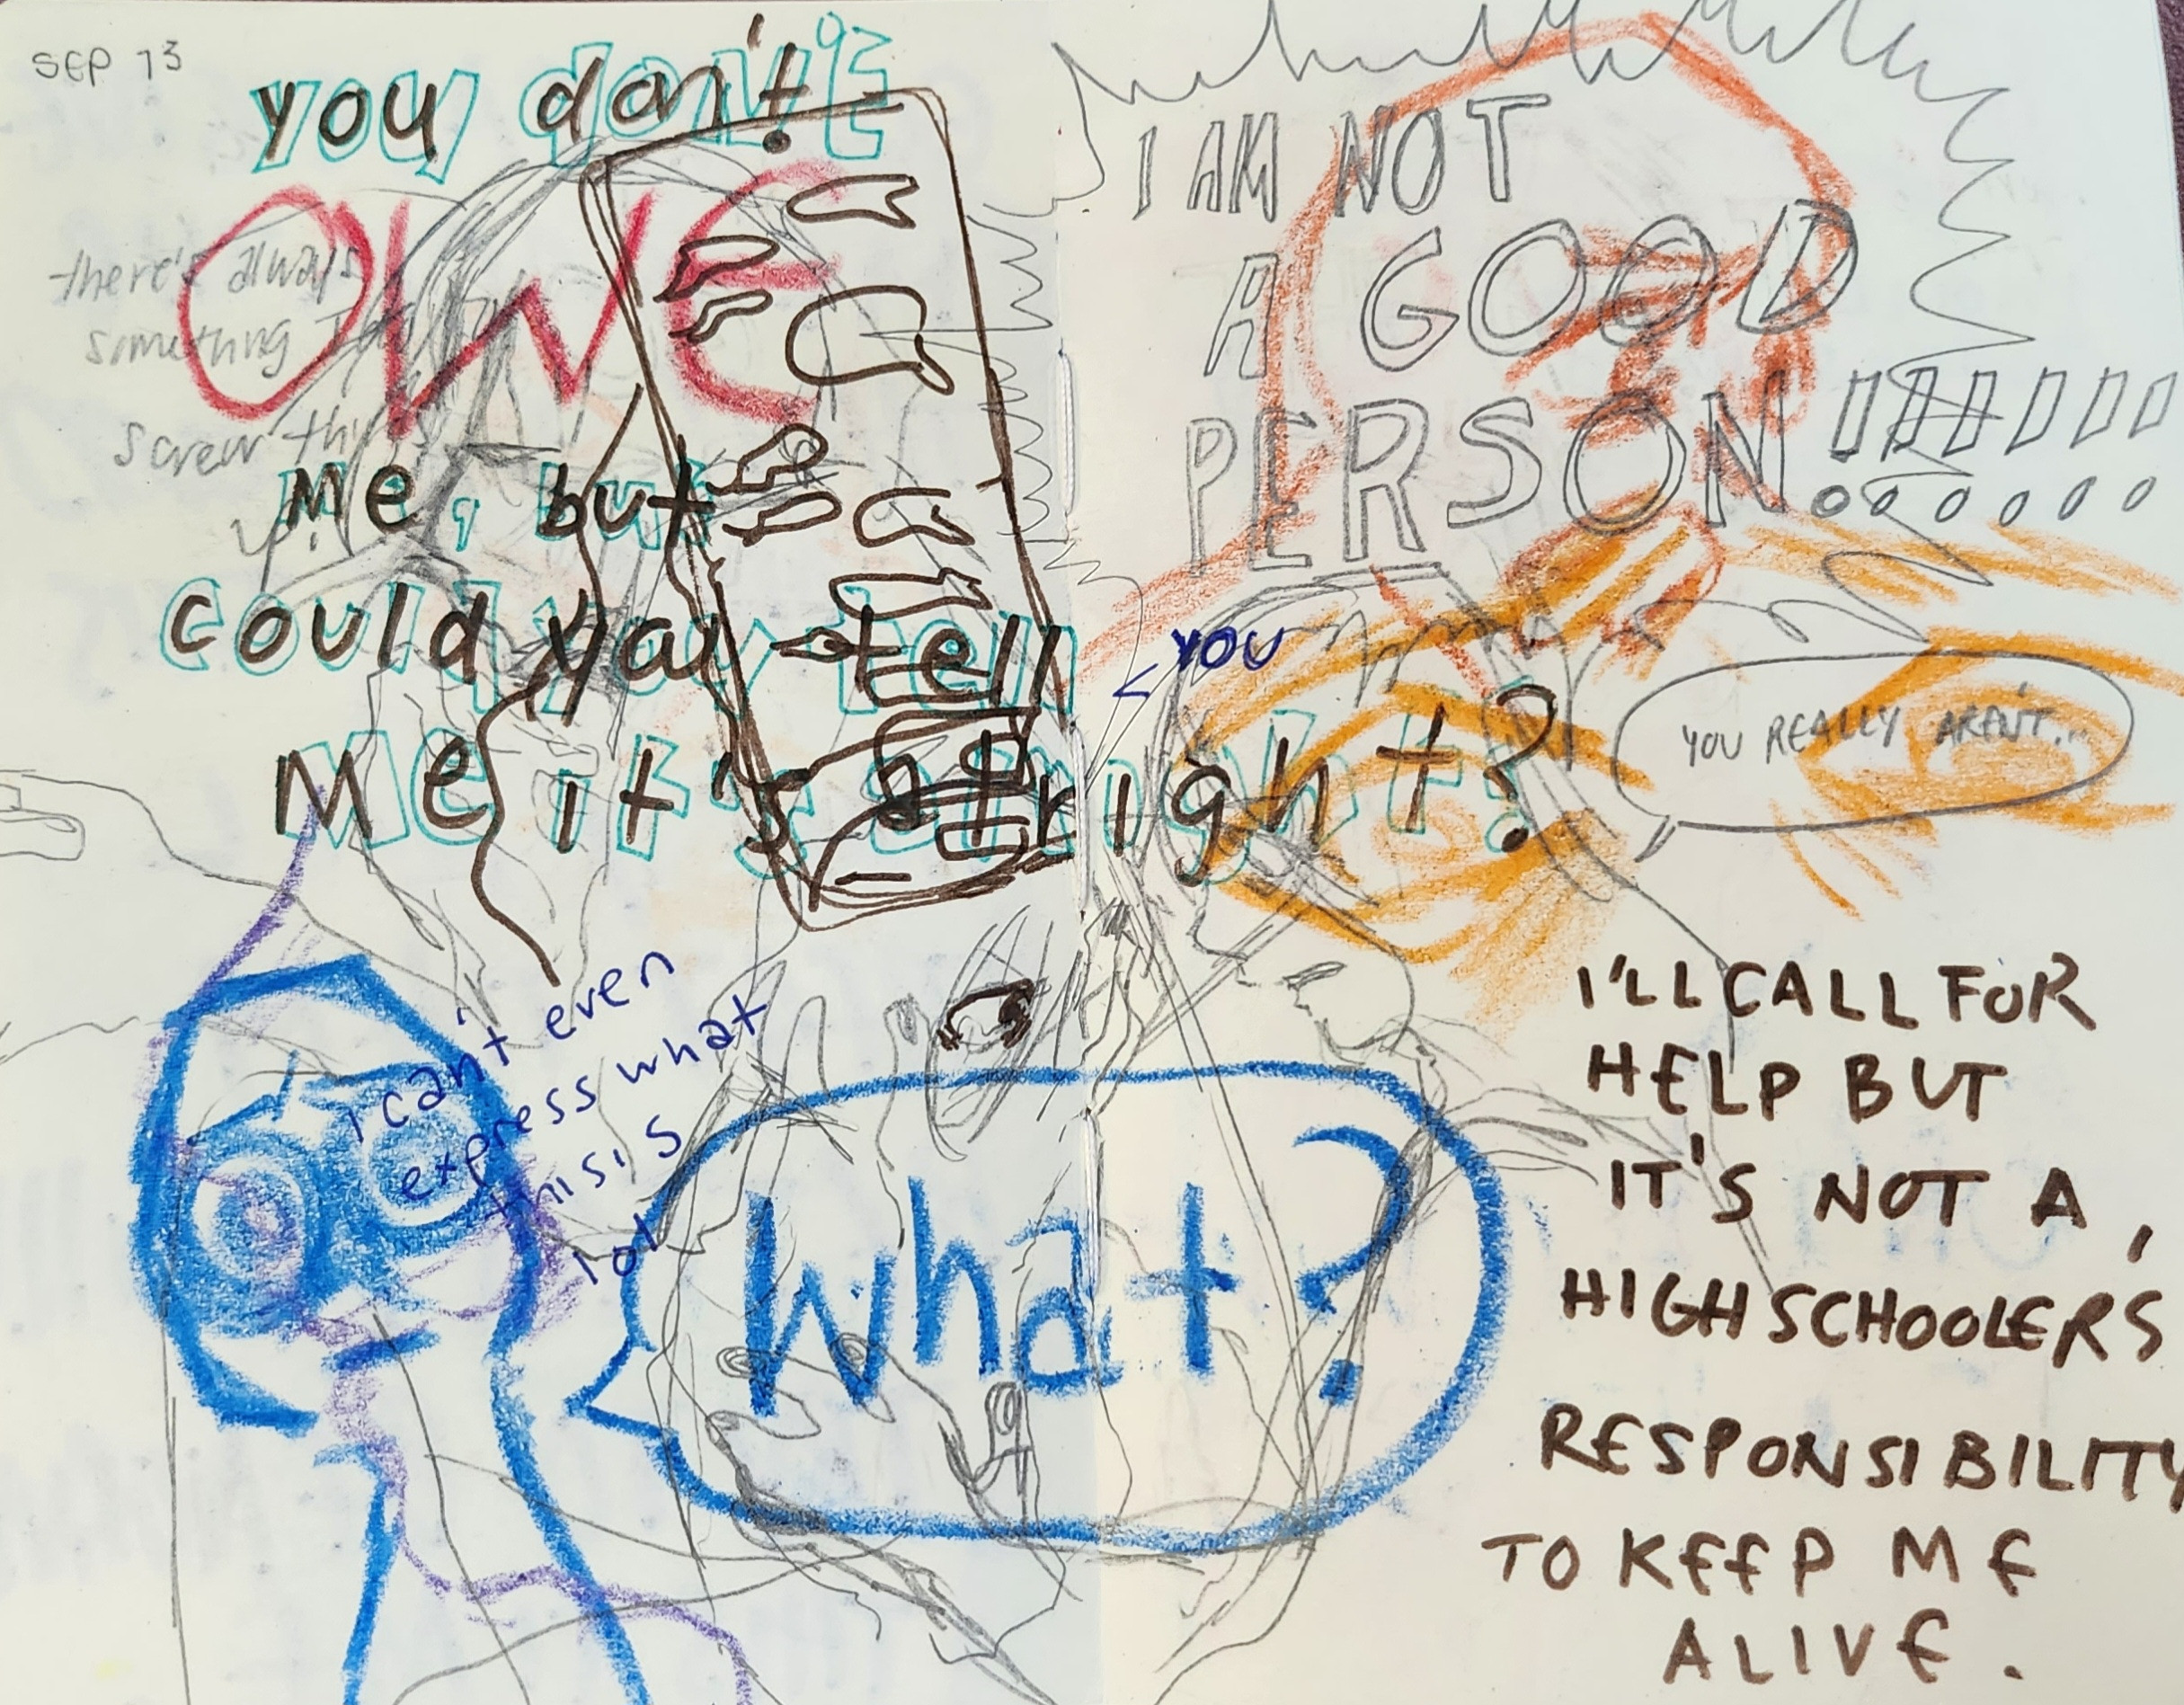 SEP 13
you don't
OWE
there's always
something I
screw this
Me, but
could you tell
Me it's alright?
I AM NOT
A GOOD
PERSON!!!!!!
YOU
YOU REALLY AREN'T...
i can't even
express what
this is
lol
What?
I'LL CALL FOR
HELP BUT
IT'S NOT A
HIGHSCHOOLER'S
RESPONSIBILITY
TO KEEP ME
ALIVE.